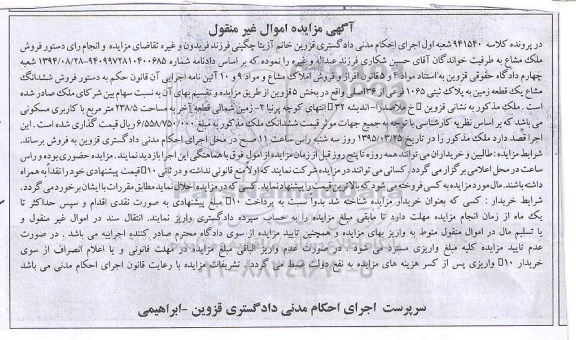 آگهی مزایده اموال غیر منقول
در پرونده کلاسه ۹۴۱۵۴۰ شعبه اول اجرای احکام مدنی دادگستری قزوین خانم آزیتا چگینی فرزند فریدون و غیره تقاضای مزایده و انجام رای دستور فروش
ملک مشاع به طرفیت خواندگان آقای حسین شکاری فرزند عداله و غیره را نموده که بر اساس دادنامه شماره ۹۴۰۹۹۷۲۸۱۰۴۰۰۶۸۵-۱۳۹۴/۰۸/۲۸ شعبه
چهارم دادگاه حقوقی قزوین به استناد مواد ۴ و ۵ قانون افراز و فروش املاک مشاع و مواد ۹ و ۱۰ آئین نامه اجرایی آن قانون حکم به دستور فروش ششدانگ
مشاع یک قطعه زمین به پلاک ثبتی ۱۰۶۵ فرعی از ۳۶ اصلی واقع در بخش ۵ قزوین از طریق مزایده و تقسیم بهای آن به نسبت سهام بین شرکای ملک صادر شده
است . ملک مذکور به نشانی قزوین خ ملاصدرا- اندیشه ۳۲ انتهای کوچه پرنیا ۲- زمین شمالی قطعه آخر به مساحت ۲۳۸/۵ متر مربع با کاربری مسکونی
می باشد که بر اساس نظریه کارشناسی با توجه به جمیع جهات موثر قیمت ششدانگ ملک مذکور به مبلغ ۶/۵۵۸/۷۵۰/۰۰۰ ریال قیمت گذاری شده است . این
اجرا قصد دارد ملک مذکور را در تاریخ ۱۳۹۵/۰۳/۲۵ روز سه شنبه راس ساعت ۱۱ صبح در محل اجرای احکام مدنی دادگستری قزوین به فروش برساند.
شرایط مزایده : طالبین و خریداران می توانند همه روزه تا پنج روز قبل از زمان مزایده از اموال فوق با هماهنگی این اجرا بازدید نمایند. مزایده حضوری بوده و راس
ساعت در محل اعلامی برگزار می گردد. کسانی می توانند در مزایده شرکت نمایند که اولاً منع قانونی نداشته و در ثانی ۱۰ قیمت پیشنهادی خود را نقداً به همراه
داشته باشند. مال مورد مزایده به کسی فروخته می شود که بالاترین قیمت را پیشنهاد نماید. کسی که در مزایده اخلال نماید مطابق مقررات با ایشان برخورد می گردد.
شرایط خریدار : کسی که بعنوان خریدار مزایده شناخته شد بدواً نسبت به پرداخت ۱۰ مبلغ پیشنهادی به صورت نقدی اقدام و سپس حداکثر تا
یک ماه از زمان انجام مزایده مهلت دارد تا مابقی مبلغ مزایده را به حساب سپرده دادگستری واریز نمایند. انتقال سند در اموال غیر منقول و
یا تسلیم مال در اموال منقول منوط به واریز بهای مزایده و همچنین تایید مزایده از سوی دادگاه محترم صادر کننده اجراییه می باشد . در صورت
عدم تایید مزایده کلیه مبلغ واریزی مسترد می شود . در صورت عدم واریز الباقی مبلغ مزایده در مهلت قانونی و یا اعلام انصراف از سوی
خریدار ۱۰ واریزی پس از کسر هزینه های مزایده به نفع دولت ضبط می گردد . تشریفات مزایده با رعایت قانون اجرای احکام مدنی می باشد
سرپرست اجرای احکام مدنی دادگستری قزوین -ابراهیمی